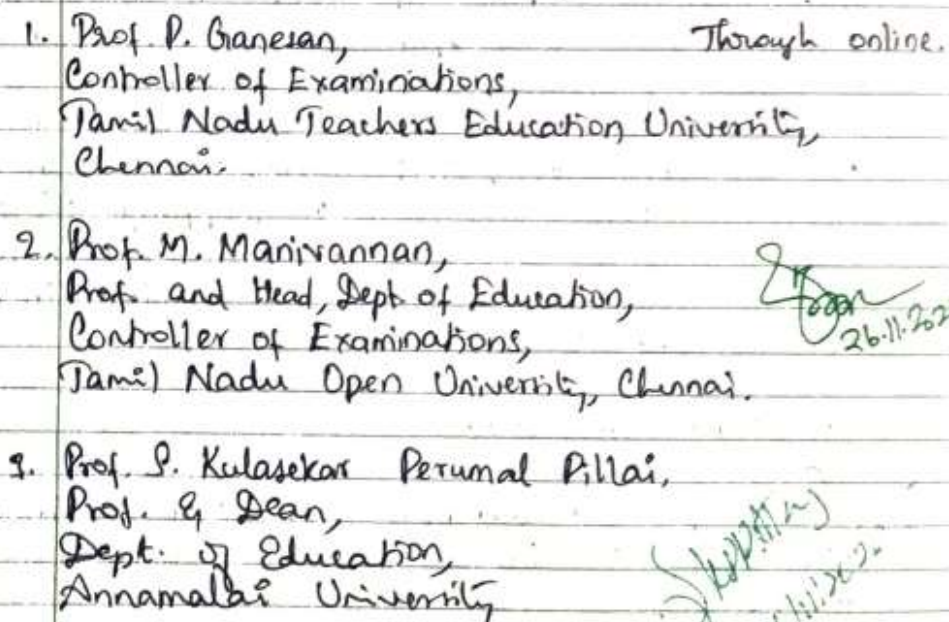 1. Prof. P. Ganesan, Through online.
Controller of Examinations,
Tamil Nadu Teachers Education University,
Chennai.
2. Prof. M. Manivannan,
Prof. and Head, Dept of Education,
Controller of Examinations, 26.11.202
Tamil Nadu Open University, Chennai.
3. Prof. S. Kulasekar Perumal Pillai,
Prof. & Dean,
Dept. of Education,
Annamalai University